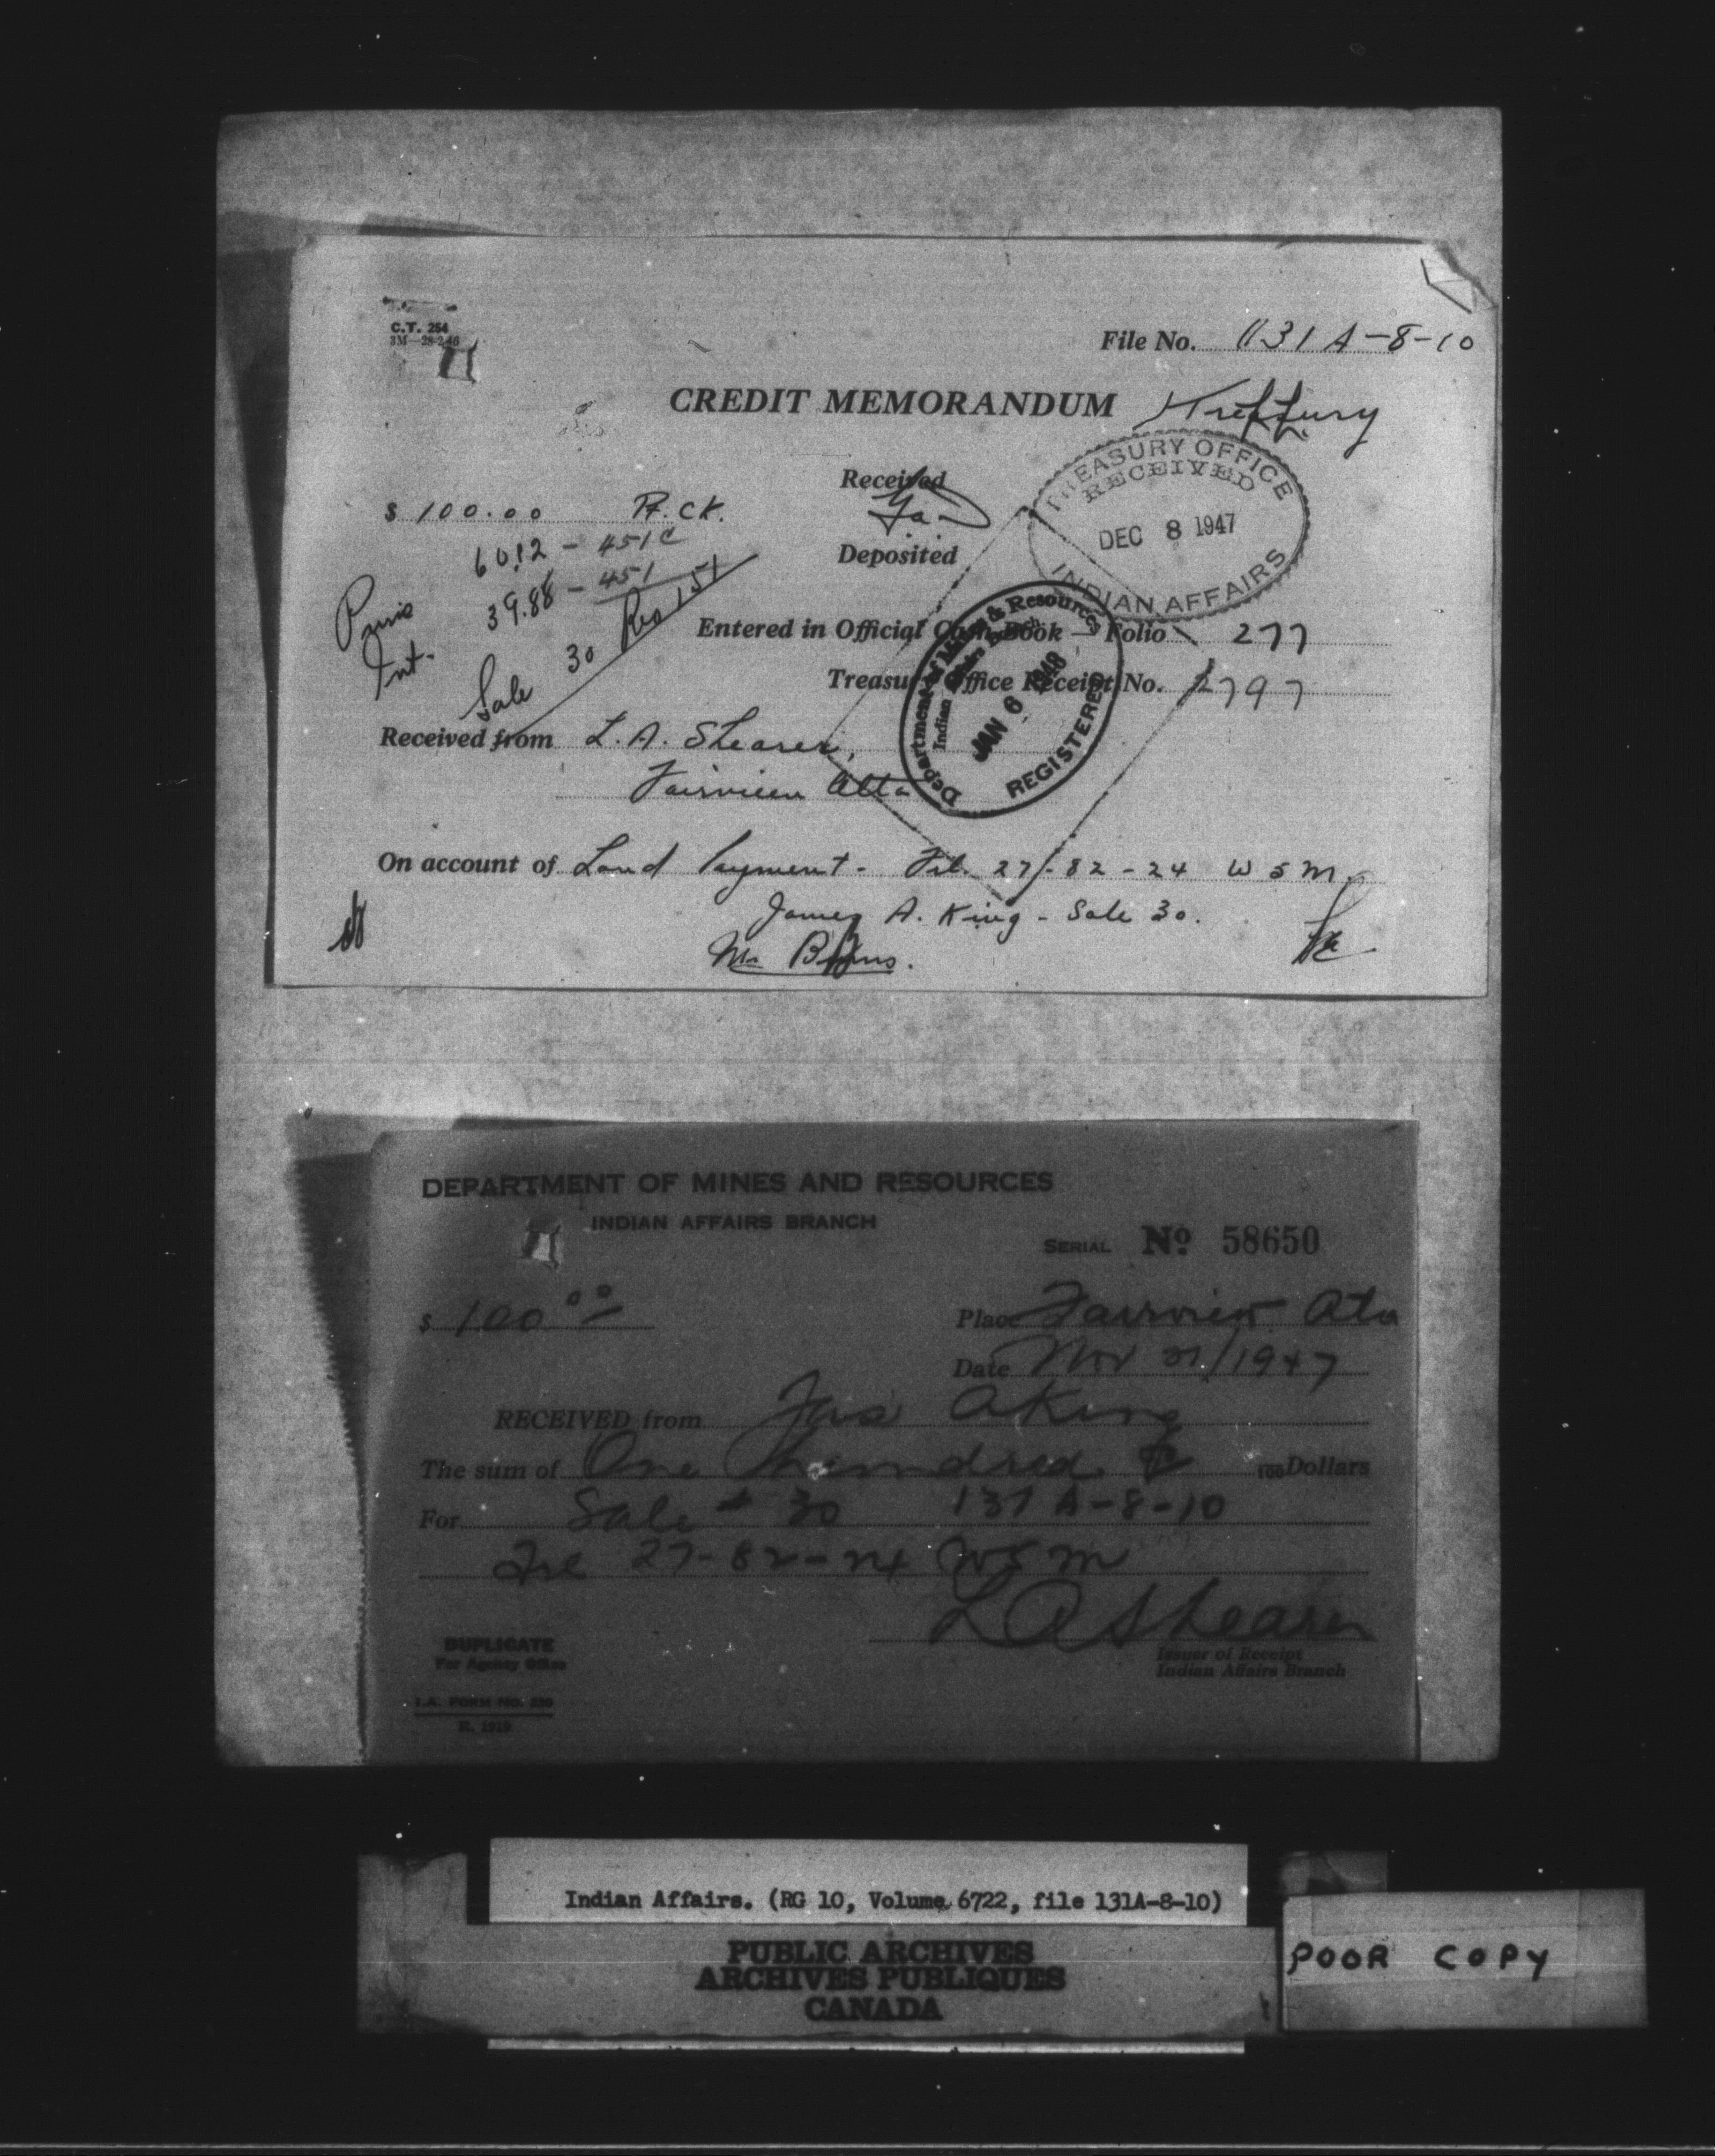 C.T. 264
3M—28-2-46
File No. 131 A-8-10
CREDIT MEMORANDUM
TREASURY OFFICE
RECEIVED
DEC 8 1947
INDIAN AFFAIRS
Received
$ 100.00
Deposited
60.12 - 451C
Prin
39.88 - 451
Int.
Sale 30 Res 151
Entered in Official Cash Book — Folio 277
Treasury Office Receipt No. 2797
Department of Mines & Resources
Indian Affairs
JAN 6 1948
REGISTERED
Received from L. A. Shearer,
Fairview Alta
On account of Land Payment - Frl. 27-82-24 W 5 M.
James A. King - Sale 30.
DEPARTMENT OF MINES AND RESOURCES
INDIAN AFFAIRS BRANCH
SERIAL No 58650
$ 100 00
Place Fairview Alta
Date Nov 21/1947
RECEIVED from Jas A King
The sum of One hundred 100 Dollars
For Sale # 30 131 A-8-10
Frl 27-82-24 W5M
L A Shearer
Issuer of Receipt
Indian Affairs Branch
DUPLICATE
For Agency Office
I.A. FORM NO. 330
R. 1919
Indian Affairs. (RG 10, Volume 6722, file 131A-8-10)
PUBLIC ARCHIVES
ARCHIVES PUBLIQUES
CANADA
POOR COPY